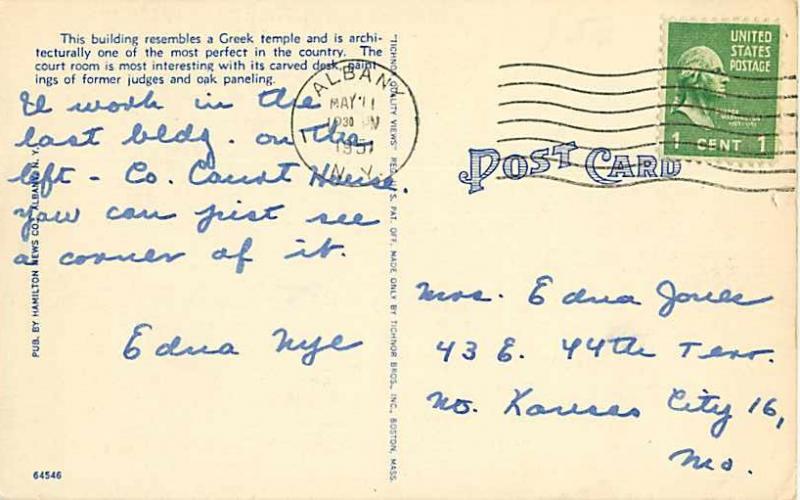 This building resembles a Greek temple and is archi-
tecturally one of the most perfect in the country. The
court room is most interesting with its carved desk, paint-
ings of former judges and oak paneling.
I work in the
last bldg. on the
left - Co. Court House.
You can just see
a corner of it.
Edna Nye
PUB. BY HAMILTON NEWS CO., ALBANY, N. Y.
64546
"TICHNOR QUALITY VIEWS" REG. U. S. PAT. OFF. MADE ONLY BY TICHNOR BROS., INC., BOSTON, MASS.
ALBANY
MAY 11
1951
N.Y.
UNITED
STATES
POSTAGE
1 CENT 1
POST CARD
Mrs. Edna Jones
43 E. 44th Terr.
No. Kansas City 16,
Mo.